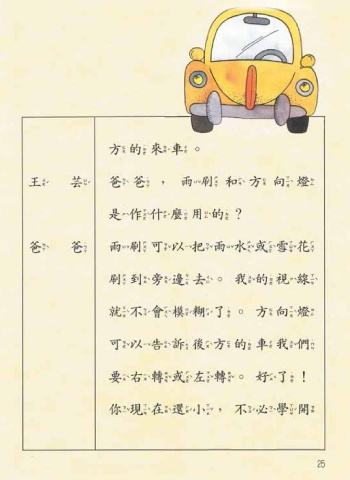 方的來車。
王芸 爸爸，雨刷和方向燈
是作什麼用的？
爸爸 雨刷可以把雨水或雪花
刷到旁邊去。我的視線
就不會模糊了。方向燈
可以告訴後方的車我們
要右轉或左轉。好了！
你現在還小，不必學開
25